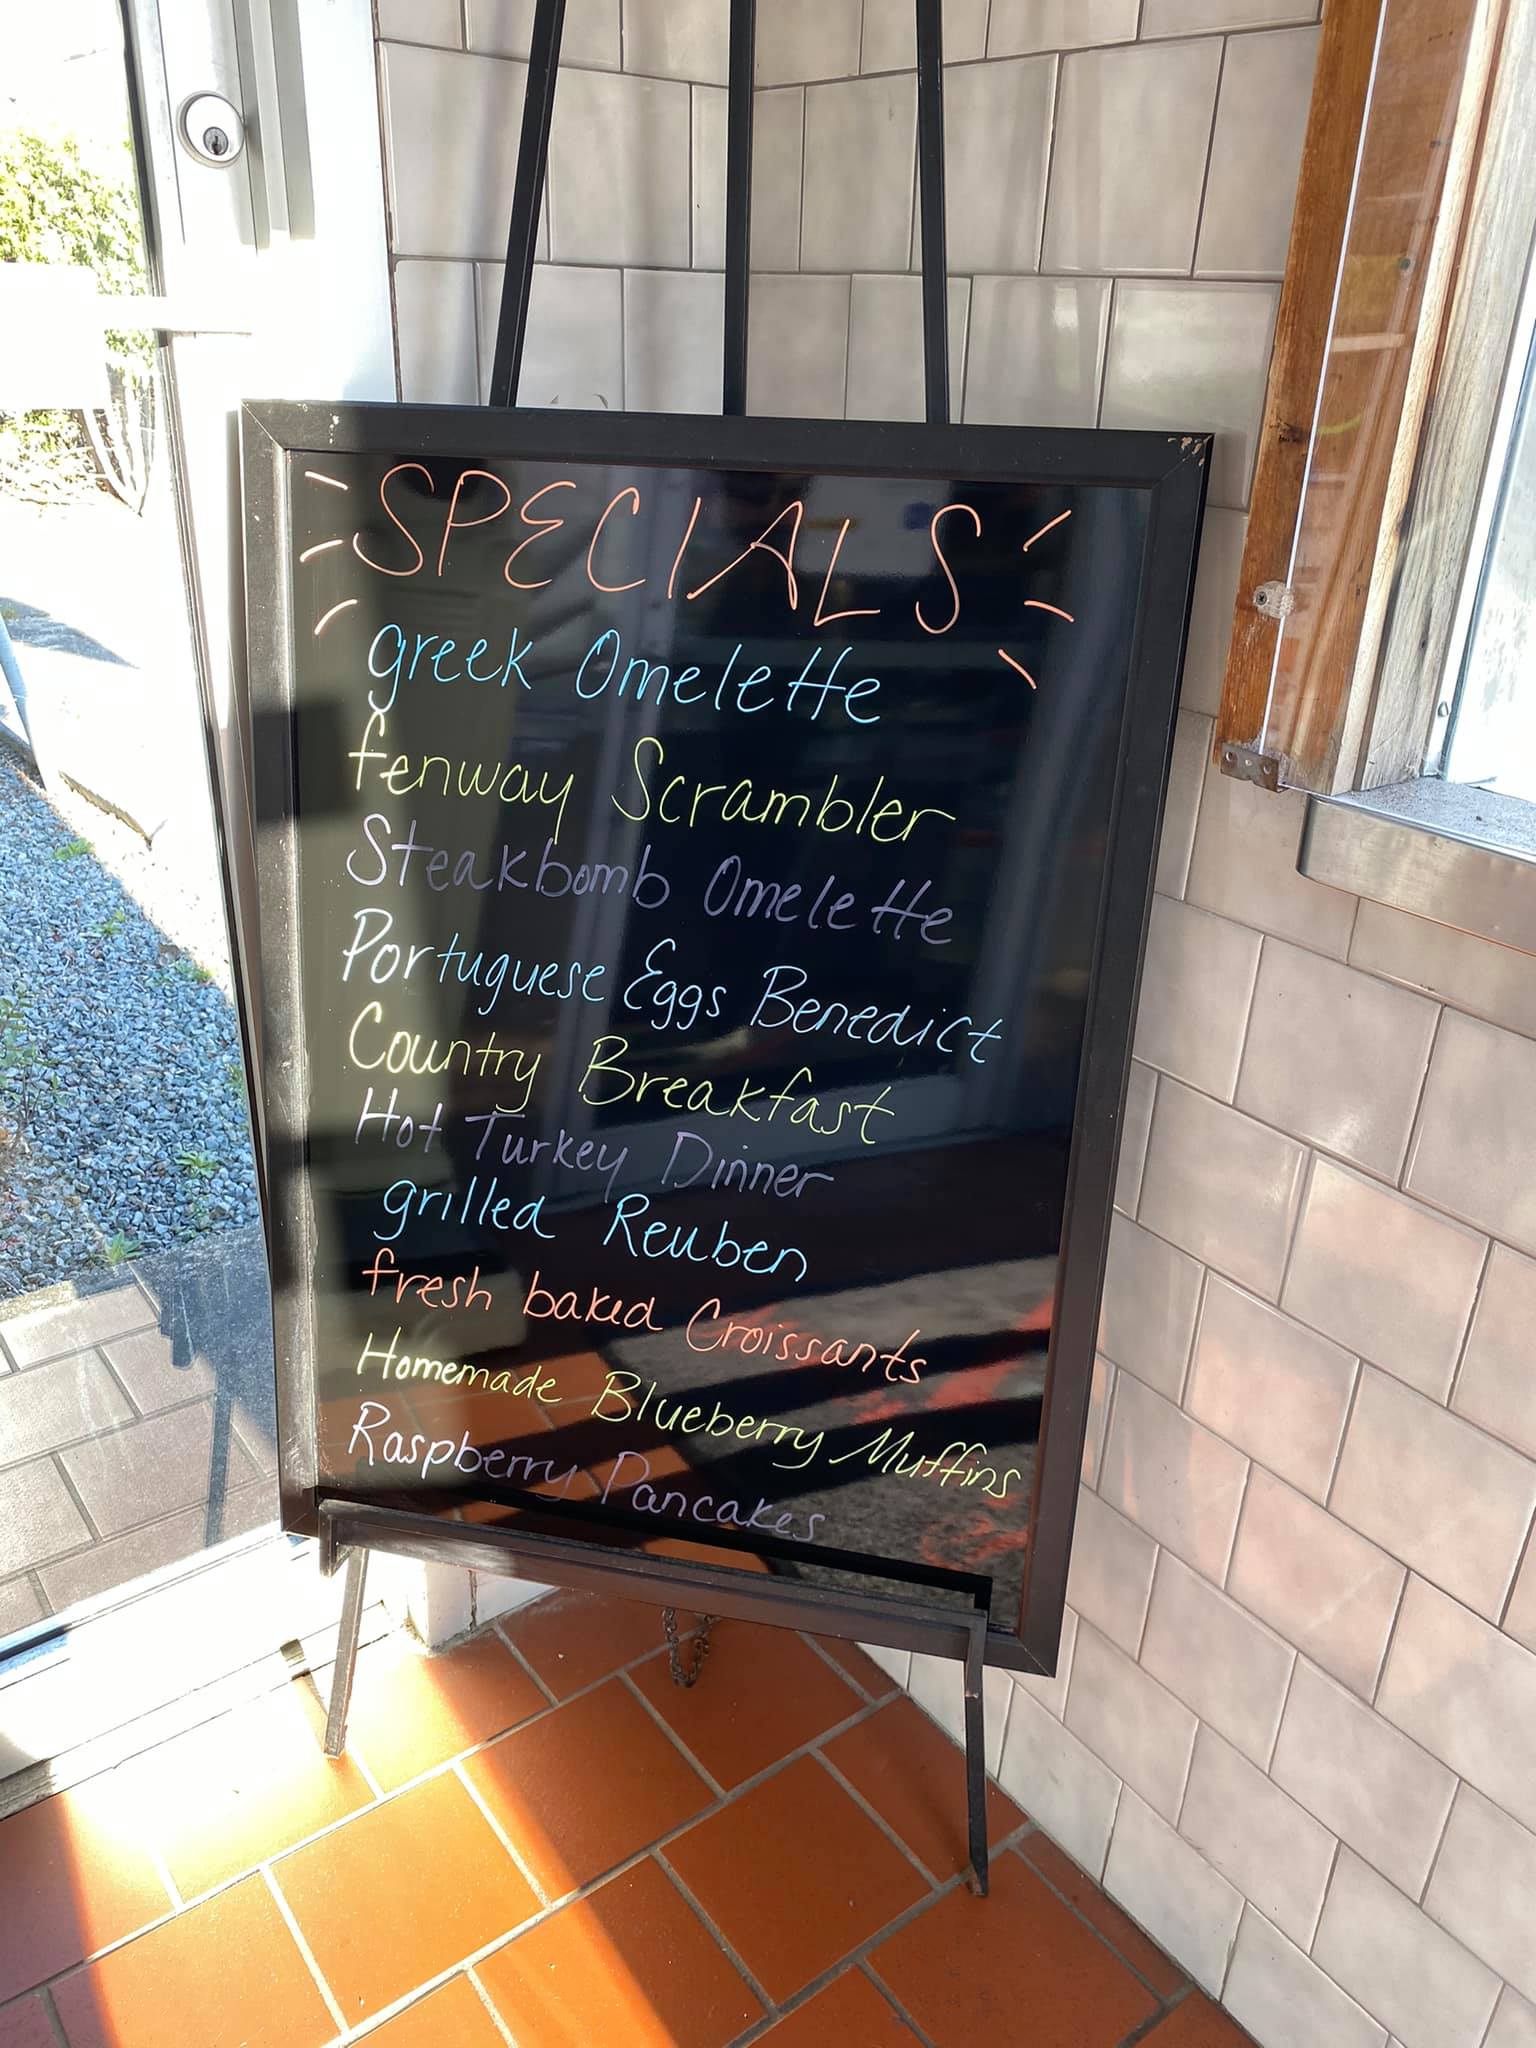 SPECIALS
greek Omelette
fenway Scrambler
Steakbomb Omelette
Portuguese Eggs Benedict
Country Breakfast
Hot Turkey Dinner
grilled Reuben
fresh baked Croissants
Homemade Blueberry Muffins
Raspberry Pancakes